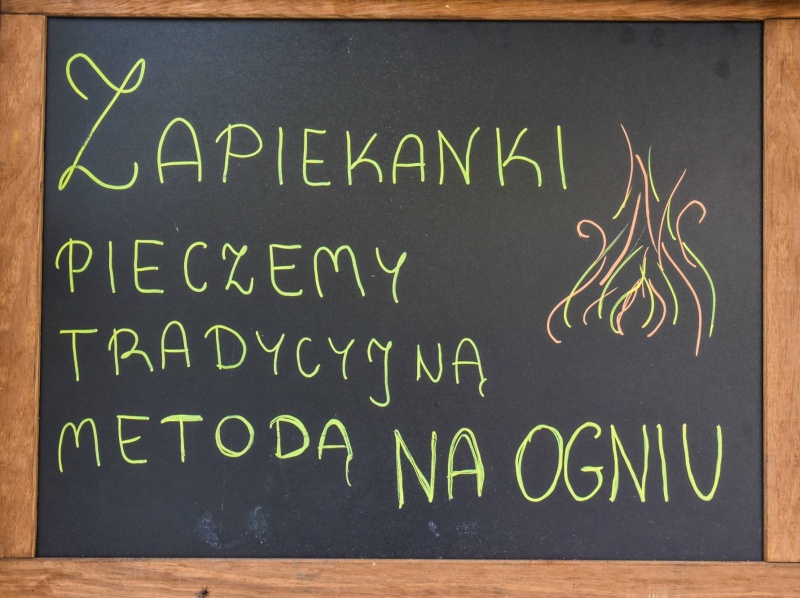 ZAPIEKANKI
PIECZEMY
TRADYCYJNĄ
METODĄ NA OGNIU